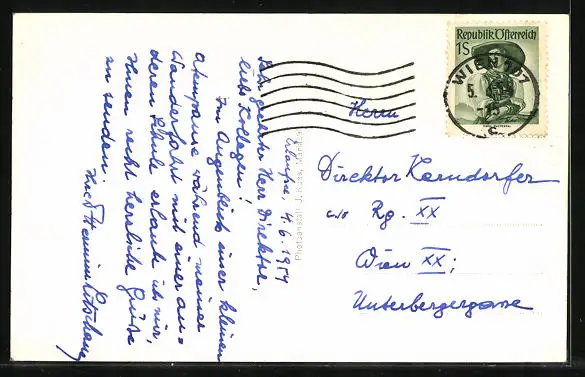 Erlaufsee, 4.6.1954
Sehr geehrter Herr Direktor,
liebe Kollegen!
Im Augenblick einer kleinen
Atempause während meiner
Wanderfahrt mit einer an-
deren Schule erlaube ich mir,
Ihnen recht herzliche Grüße
zu senden.
Ihre
Photoanstalt J. Kuss, Mariazell
Republik Österreich
1S
WIEN 107
5.
Herrn
Direktor Karndorfer
Rg. XX
Wien XX;
Unterbergergasse